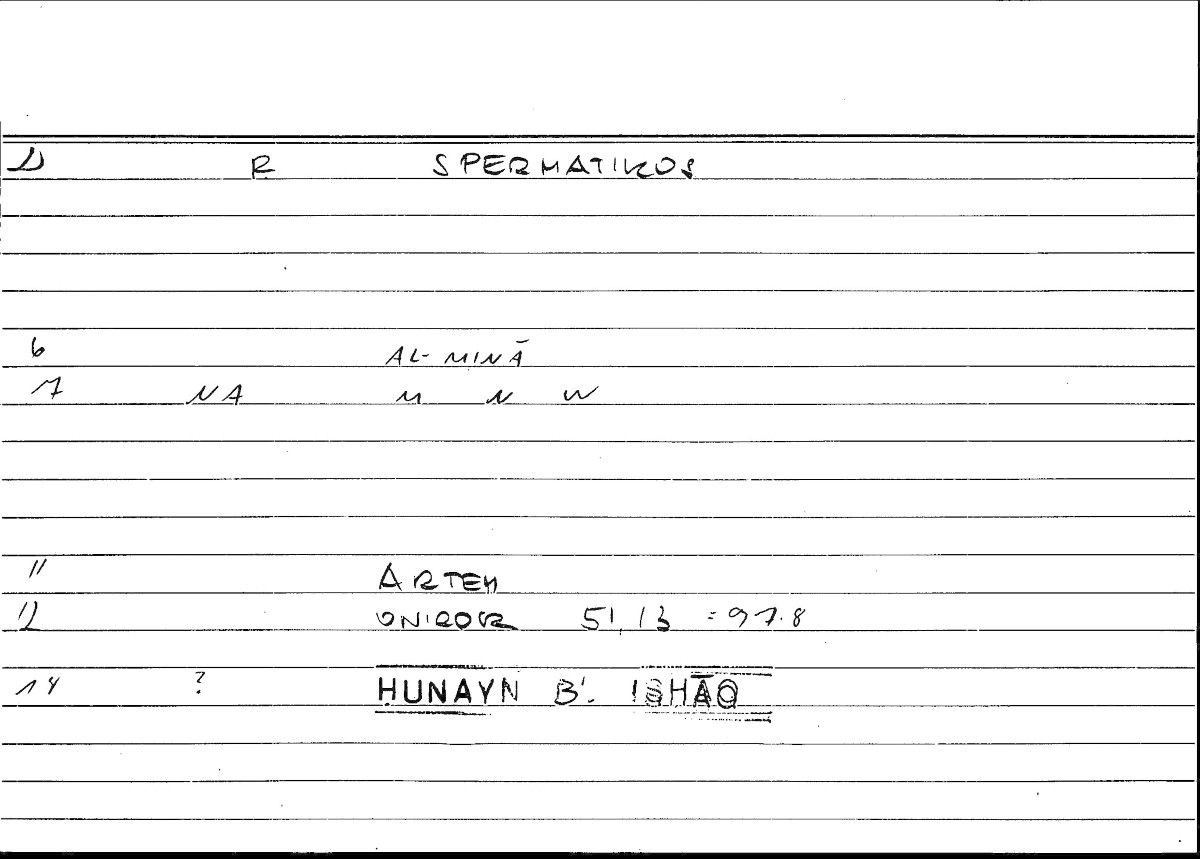 D R SPERMATIKOS
6 AL-MINĀ
7 NA M N W
11 ARTEM
12 ONIROCR 51,13 = 97.8
14 ? ḤUNAYN B. ISḤĀQ